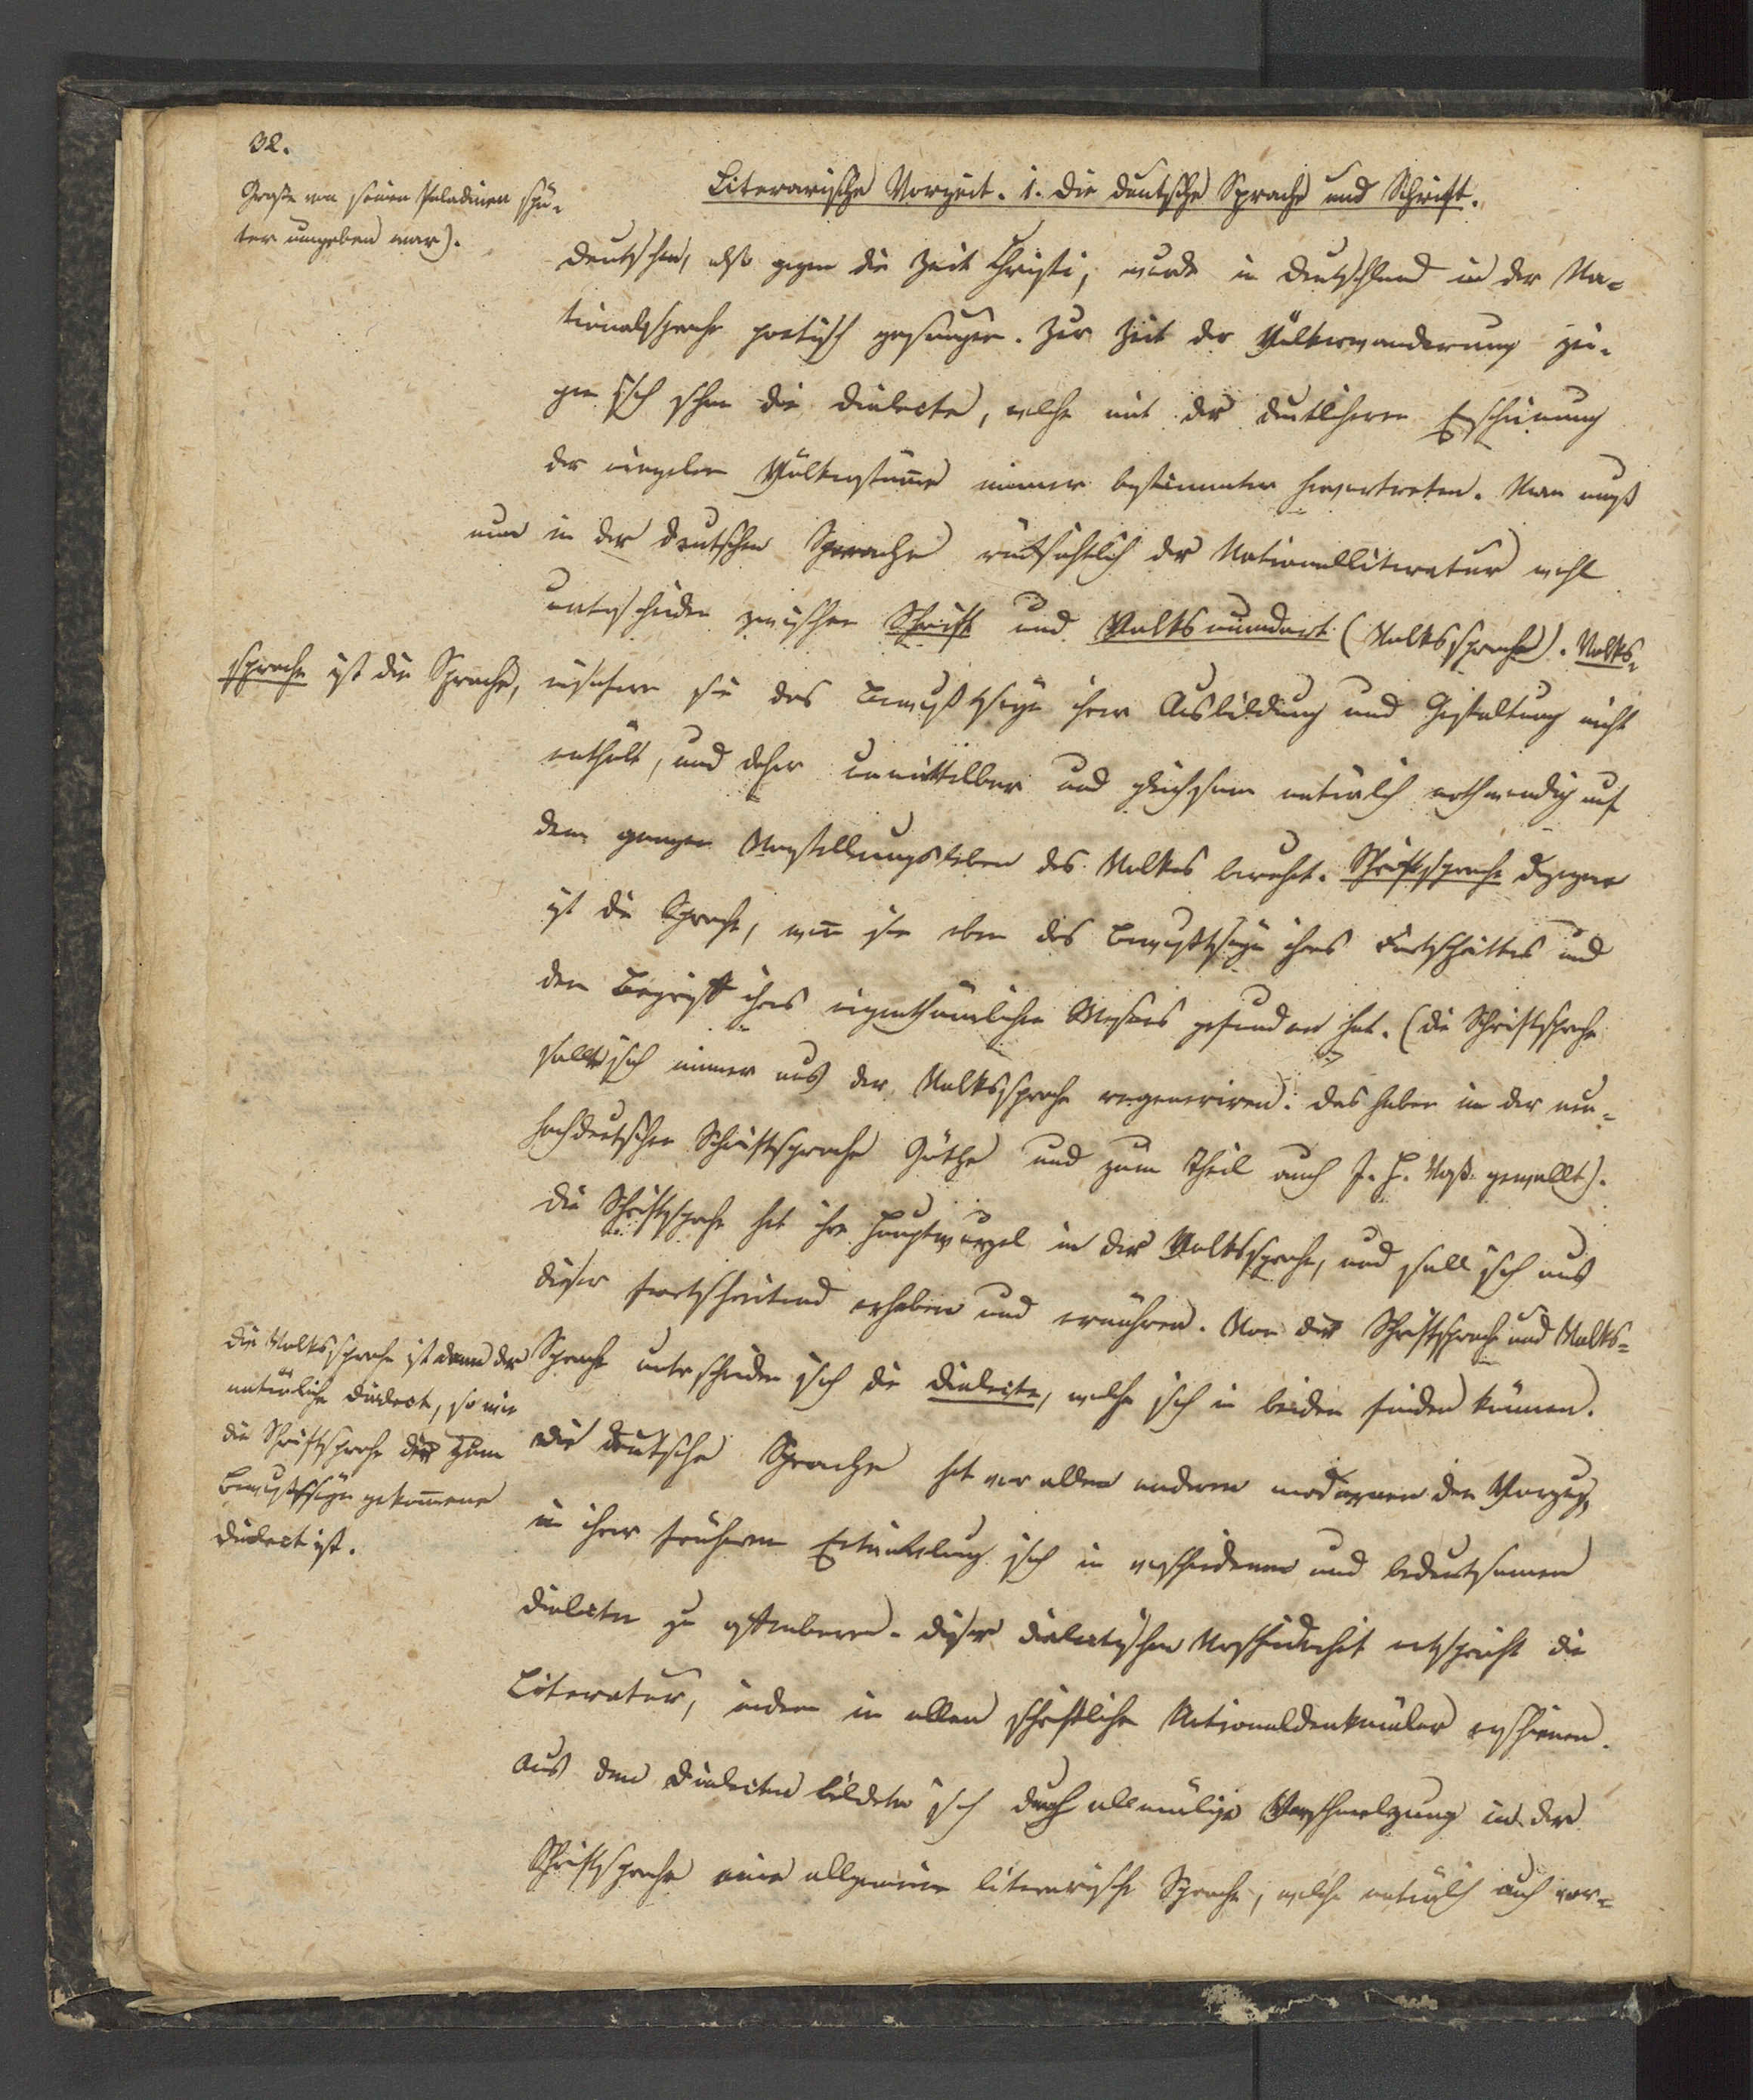 32.
Große von seinen Paladinen spä-
ter umgeben war).
Literarische Vorzeit. 1. Die deutsche Sprache und Schrift.
Deutschen, also gegen die Zeit Christi, wurde in Deutschland in der Na-
tionalsprache poetisch gesungen. Zur Zeit der Völkerwanderung zei-
gen sich schon die Dialecte, welche mit der deutlicheren Erscheinung
der einzelnen Völkerstäm̅e immer bestimmter hervortreten. Man muß
nun in der deutschen Sprache rücksichtlich der Nationalliteratur wohl
unterscheiden zwischen Schrift und Volksmundart (Volkssprache). Volks-
sprache ist die Sprache, insofern sie das Bewußtseyn ihrer Ausbildung und Gestaltung nicht
enthält, und daher unmittelbar und gleichsam natürlich nothwendig auf
dem ganzen Vorstellungsleben des Volkes beruht. Schriftsprache dagegen
ist die Sprache, wen̅ sie eben das Bewußtseyn ihres Fortschrittes und
den Begriff ihres eigenthümlichen Wesens gefunden hat. (Die Schriftsprache
sollte sich immer aus der Volkssprache regeneriren. Das haben in der neu-
hochdeutschen Schriftsprache Göthe und zum Theil auch J. H. Voß gewollt).
Die Schriftsprache hat ihre Hauptwurzel in der Volkssprache, und soll sich aus
dieser fortschreitend erheben und ernähren. Von der Schriftsprache und Volks-
Sprache unterscheiden sich die Dialecte, welche sich in beiden finden können.
Die Volkssprache ist dann der
natürliche Dialect, so wie
die Schriftsprache der zum
Bewußtseyn gekom̅ene
Dialect ist.
Die deutsche Sprache hat vor allen anderen modernen den Vorzug,
in ihrer früheren Entwickelung sich in verschiedenen und bedeutsamen
Dialecten zu offenbaren. Dieser dialectischen Verschiedenheit entspricht die
Literatur, indem in allen schriftliche Nationaldenkmäler erschienen.
Aus den Dialecten bildete sich durch allmälige Verschmelzung in der
Schriftsprache eine allgemeine literarische Sprache, welche natürlich auch vor-